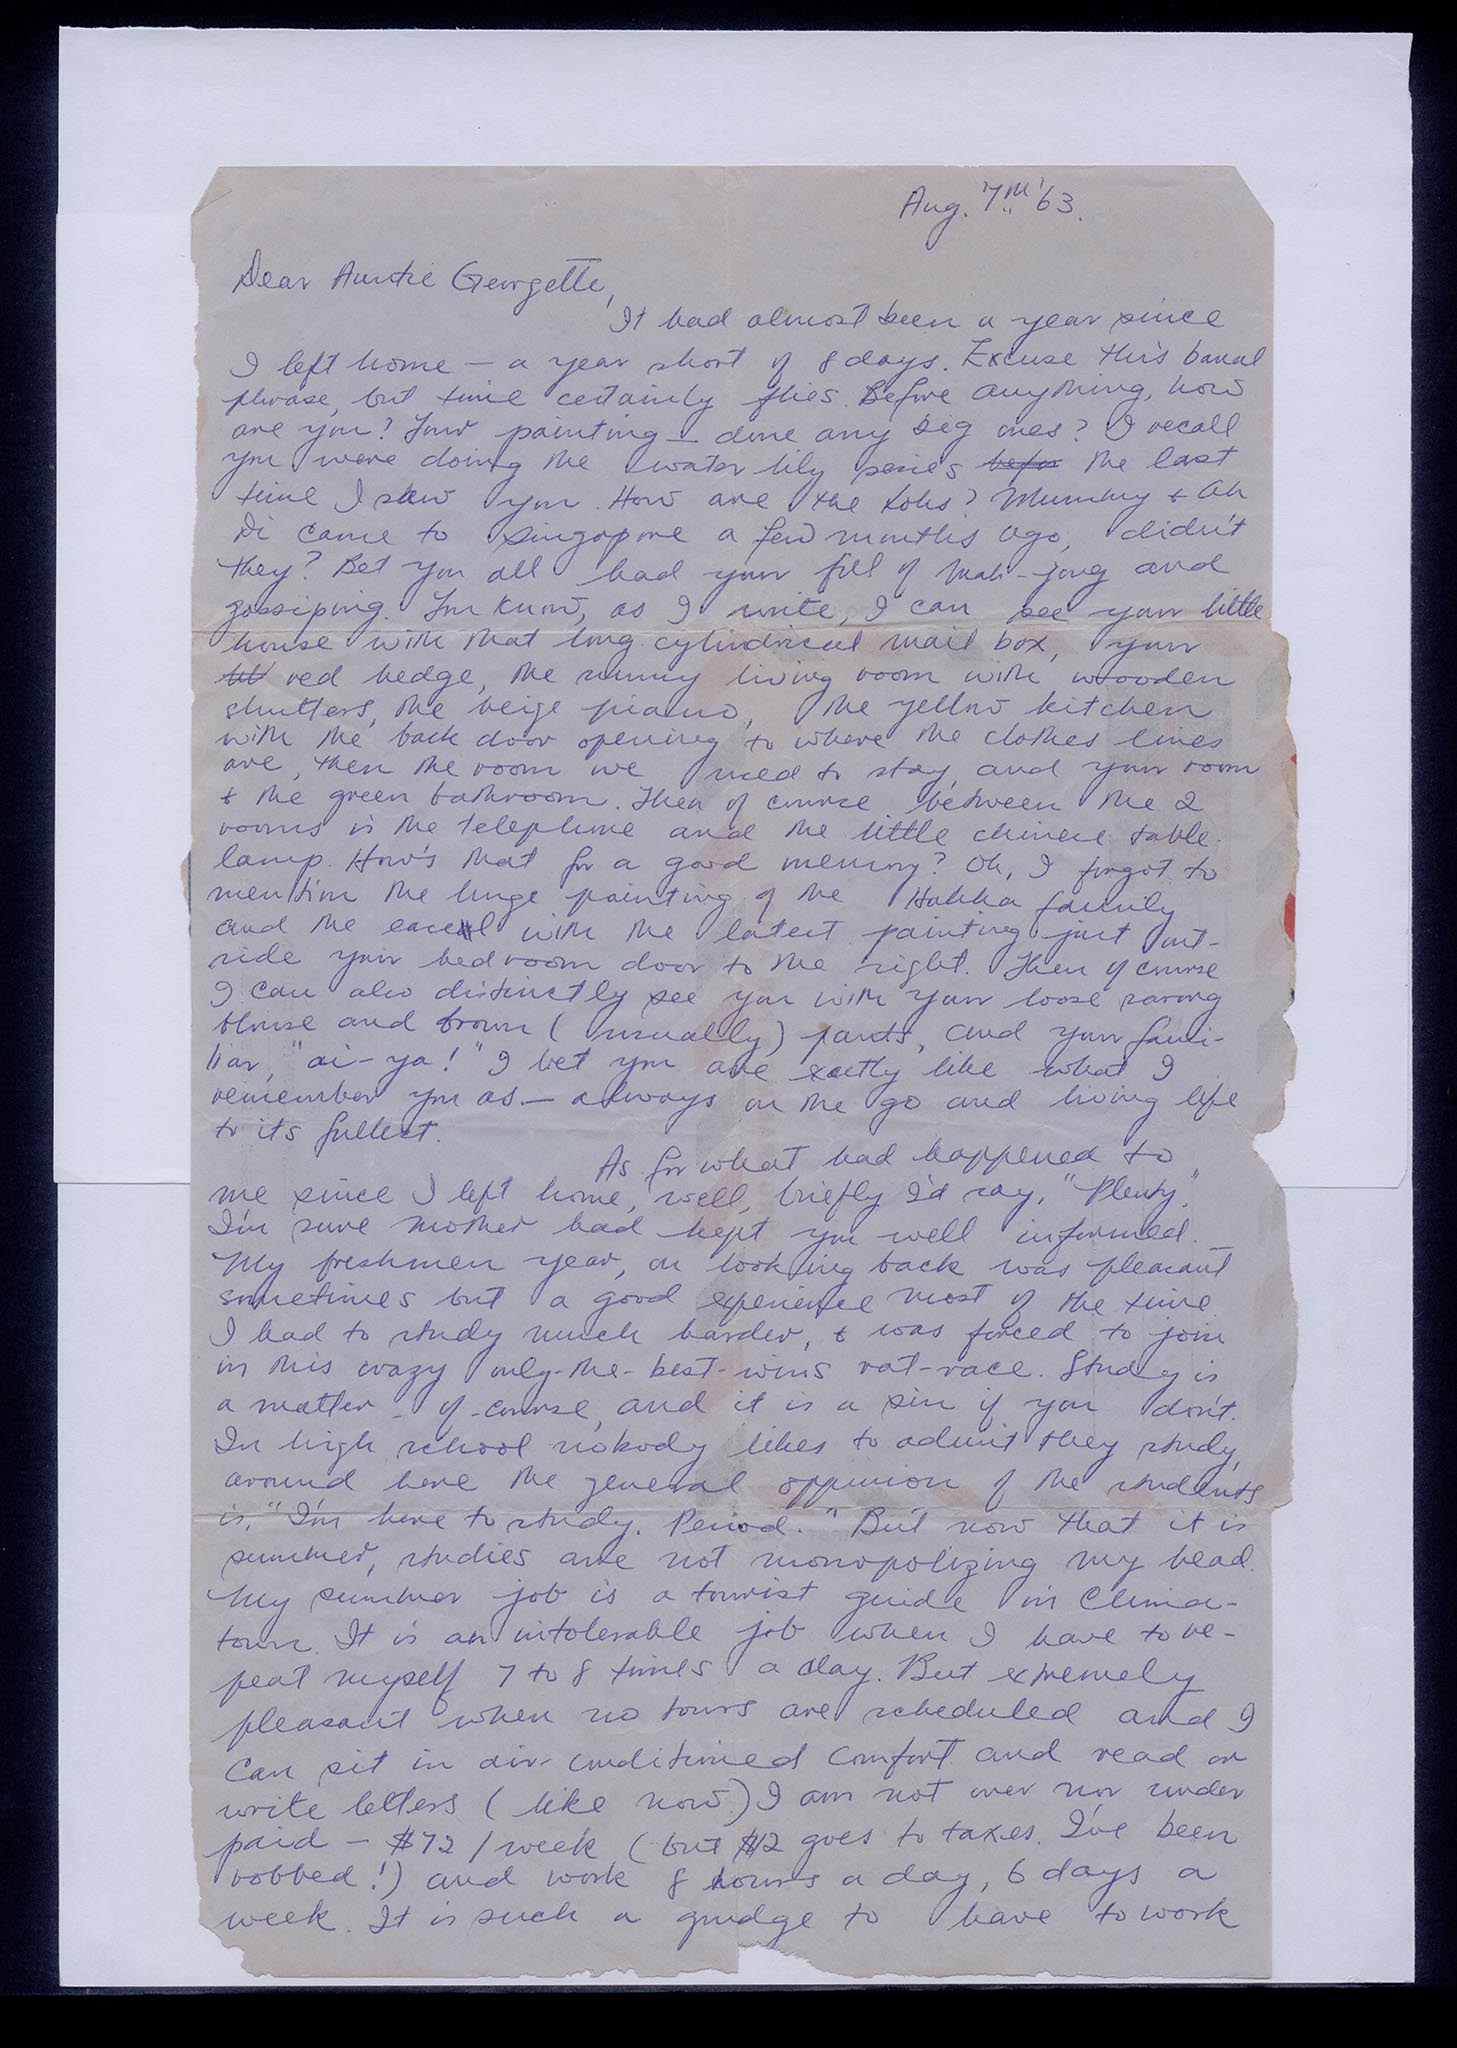 Aug. 7th '63.
Dear Auntie Georgette,
It had almost been a year since
I left home — a year short of 8 days. Excuse this banal
phrase, but time certainly flies. Before anything, how
are you? Your painting — done any big ones? I recall
you were doing the water lily series the last
time I saw you. How are the Lohs? Mummy & Ah
Di came to Singapore a few months ago, didn't
they? Bet you all had your fill of mah-jong and
gossiping. You know, as I write, I can see your little
house with that long cylindrical mail box, your
red hedge, the sunny living room with wooden
shutters, the beige piano, the yellow kitchen
with the back door opening to where the clothes lines
are, then the room we used to stay, and your room
& the green bathroom. Then of course between the 2
rooms is the telephone and the little chinese table-
lamp. How's that for a good memory? Oh, I forgot to
mention the huge painting of the Hakka family
and the easel with the latest painting just out-
side your bedroom door to the right. Then of course
I can also distinctly see you with your loose sarong
blouse and brown (usually) pants, and your fami-
liar, "ai-ya!" I bet you are exctly like what I
remember you as — always on the go and living life
to its fullest.
As for what had happened to
me since I left home, well, briefly I'd say, "Plenty."
I'm sure mother had kept you well informed.
My freshmen year, on looking back was pleasant
sometimes but a good experience most of the time.
I had to study much harder, & was forced to join
in this crazy only-the-best-wins rat-race. Study is
a matter-of-course, and it is a sin if you don't.
In high school nobody likes to admit they study,
around here the general oppinion of the students
is, "I'm here to study. Period." But now that it is
summer, studies are not monopolizing my head.
My summer job is a tourist guide in China-
town. It is an intolerable job when I have to re-
peat myself 7 to 8 times a day. But extremely
pleasant when no tours are scheduled and I
can sit in air-conditioned comfort and read or
write letters (like now.) I am not over nor under
paid — $72/week (but $12 goes to taxes. I've been
robbed!) and work 8 hours a day, 6 days a
week. It is such a grudge to have to work